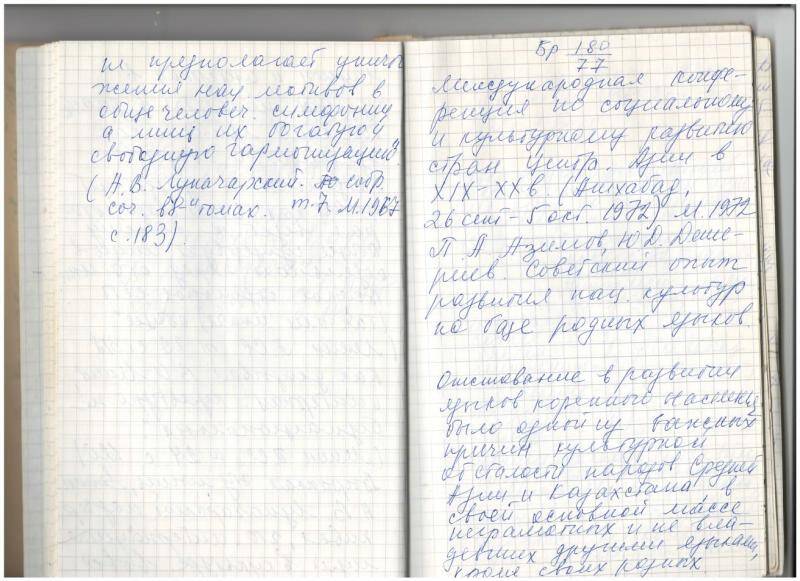 не предполагает уничто
жения нац. мотивов в
общечеловеч. симфонии
а лишь их богатую и
свободную гармонизацию".
(А.В. Луначарский. собр.
соч. в 8-и томах. т. 7. М. 1967
с. 183).
Бр 180
77
Международная конфе-
ренция по социальному
и культурному развитию
стран Центр. Азии в
XIX-XX в. (Ашхабад,
26 сент - 5 окт. 1972) М. 1972
П. А Азимов, Ю.Д. Деше-
риев. Советский опыт
развития нац. культур
на базе родных языков.
Отставание в развитии
языков коренного населения
было одной из важных
причин культурной
отсталости народов Средней
Азии и Казахстана, в
своей основной массе
неграмотных и не вла-
девших другими языками,
кроме своих родных.